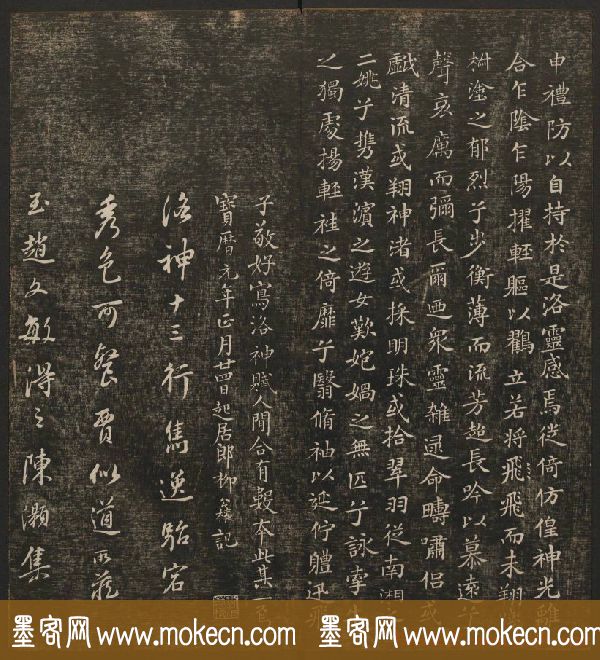 申禮防以自持於是洛靈感焉徙倚仿偟神光離
合乍陰乍陽擢輕軀以鸖立若將飛飛而未翔
塗之郁烈兮步衡薄而流芳超長吟以慕遠兮
聲哀厲而彌長爾迺眾靈雜遝命疇嘯侶或
戲清流或翔神渚或採明珠或拾翠羽從南湘
二姚兮攜漢濱之遊女歎匏媧之無匹兮詠牽牛
之獨處揚輕袿之倚靡兮翳脩袖以延佇軆迅飛
子敬好寫洛神賦人間合有數本此其一焉
寶曆元年正月廿四日起居郎柳 記
洛神十三行雋逸駘宕
秀色可餐賈似道所藏
至趙文敏得之陳灝集
墨客网 www.mokecn.com 墨客网 www.mokecn.com